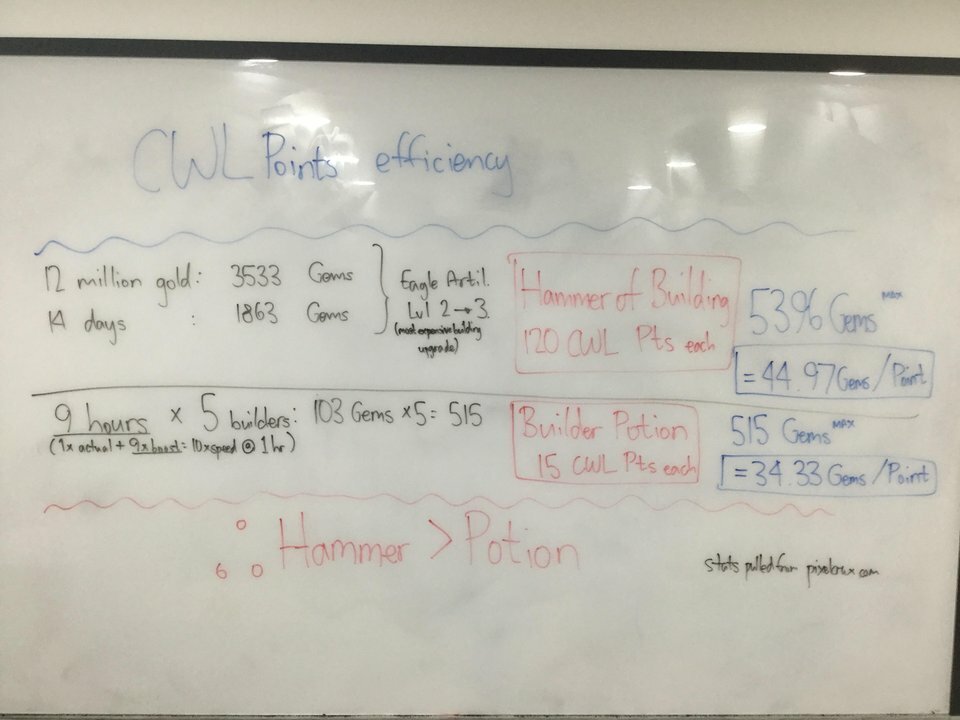 CWL Points efficiency
12 million gold: 3533 Gems
14 days : 1863 Gems
Eagle Artil.
Lvl 2→3.
(most expensive building
upgrade)
Hammer of Building
120 CWL Pts each
5396 Gems MAX
= 44.97 Gems / Point
9 hours × 5 builders: 103 Gems ×5 = 515
(1x actual + 9x boost = 10x speed @ 1 hr)
Builder Potion
15 CWL Pts each
515 Gems MAX
= 34.33 Gems / Point
∴ Hammer > Potion
stats pulled from pixelcrux.com